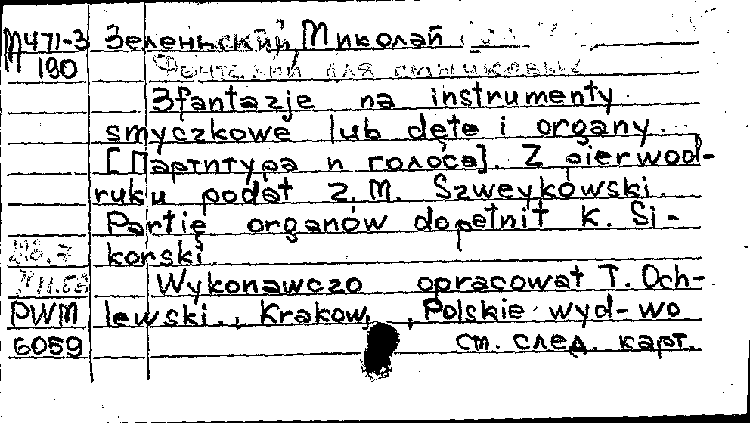 М471-3 Зеленьский, Миколай
190
3 fantazje na instrumenty
smyczkowe lub dęte i organy.
[Партитура и голоса]. Z pierwod-
ruku podał Z. M. Szweykowski.
Partię organów dopełnił K. Si-
korski.
Wykonawczo opracował T. Och-
PWM lewski., Krakow, Polskie wyd-wo
6059 см. след. карт.